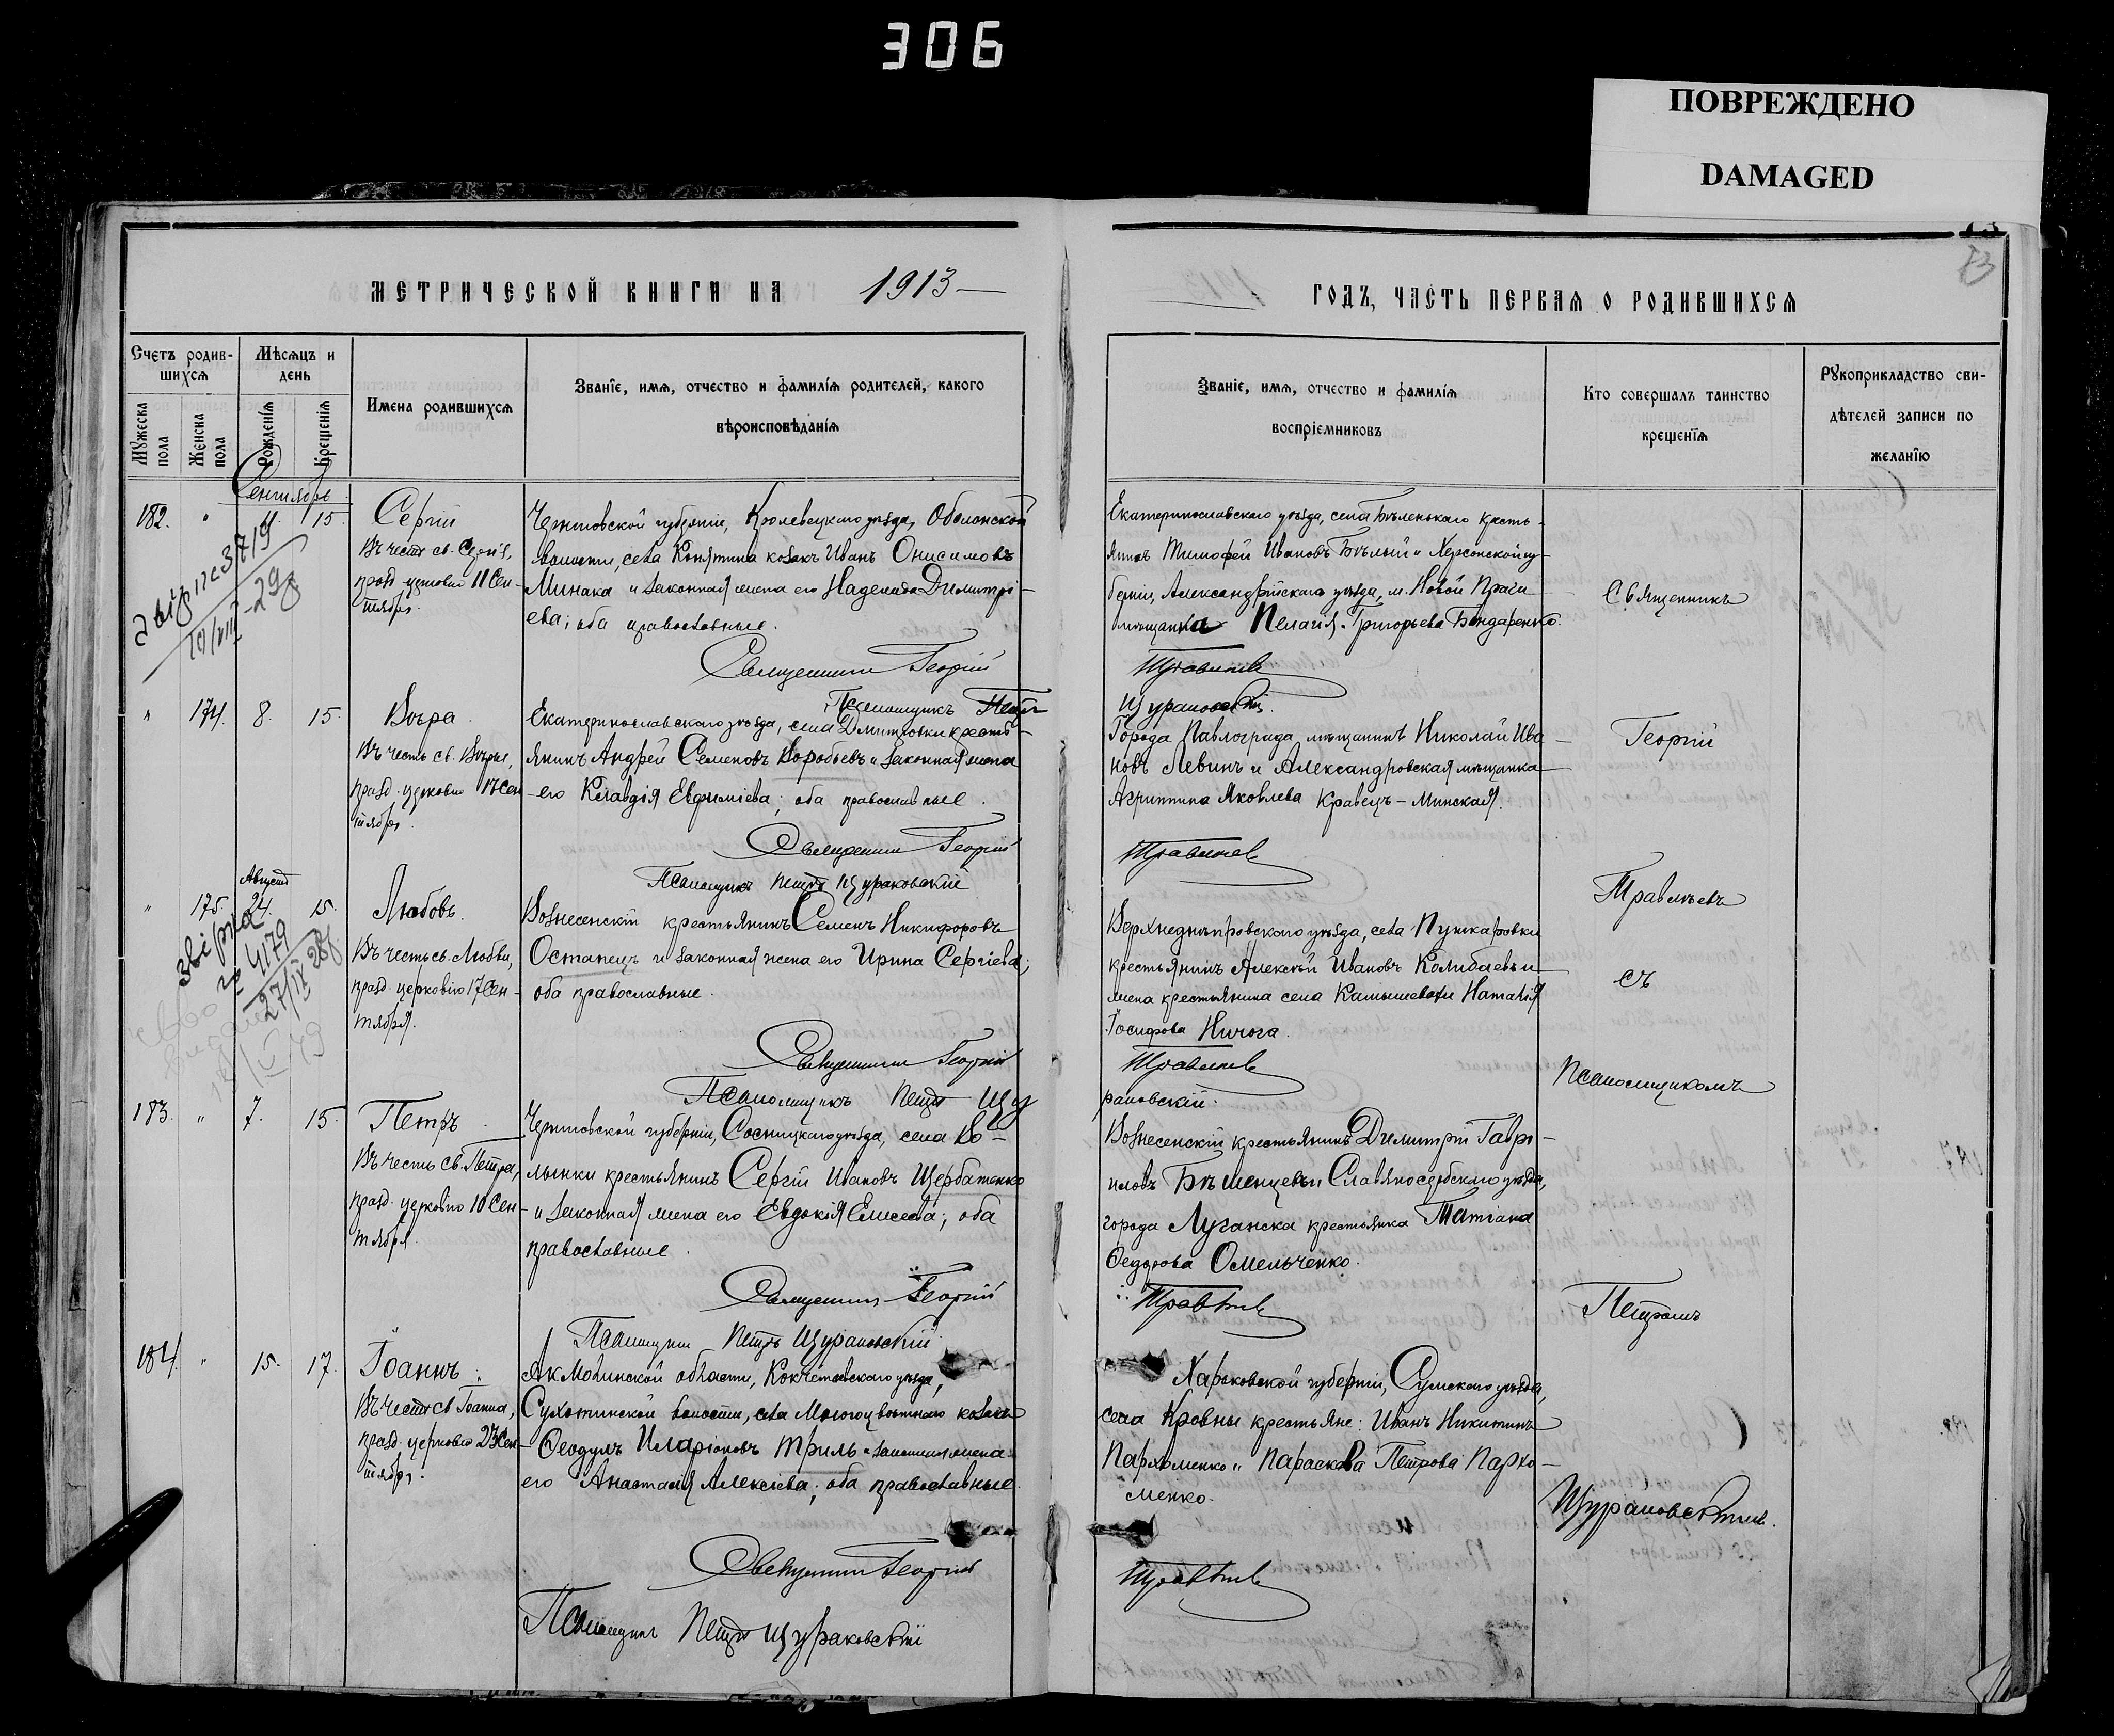 306
ПОВРЕЖДЕНО
DAMAGED
МЕТРИЧЕСКОЙ КНИГИ НА 1913
Счетъ родив-
шихся
Мѣсяцъ и
день
Мужеска
пола
Женска
пола
Рожденія
Крещенія
Имена родившихся
Званіе, имя, отчество и фамилія родителей, какого
вѣроисповѣданія
Сентябрь
182. " 15.
Сергій
Въ честь св. Сергія,
празд. церковію 11 Сен-
тября.
Черниговской губерніи, Кролевецкаго уѣзда, Оболонской
волости, села Конятина козакъ Иванъ Онисимовъ
Минака и законная жена его Надежда Димитрі-
ева; оба православные.
Священникъ Георгій
Псаломщикъ
" 174. 8. 15.
Вѣра
Въ честь св. Вѣры,
празд. церковію 17 Сен-
тября.
Екатеринославскаго уѣзда, села Дмитровки кресть-
янинъ Андрей Семеновъ Воробьевъ и законная жена
его Клавдія Евфиміева; оба православные.
Священникъ Георгій
Псаломщикъ Петръ Щураковскій
Августъ
" 175. 24. 15.
Любовь.
Въ честь св. Любви,
празд. церковію 17 Сен-
тября.
Вознесенскій крестьянинъ Семенъ Никифоровъ
Остапецъ и законная жена его Ирина Сергіева;
оба православные.
№ 4179
27/IX 28
Священникъ Георгій
Псаломщикъ Петръ Щу
183. " 7. 15.
Петръ
Въ честь св. Петра,
празд. церковію 10 Сен-
тября.
Черниговской губерніи, Сосницкаго уѣзда, села Во-
лынки крестьянинъ Сергій Ивановъ Щербатенко
и законная жена его Евдокія Елисеева; оба
православные.
Священникъ Георгій
Псаломщикъ Петръ Щураковскій
184. " 15. 17.
Іоаннъ.
Въ честь св. Іоанна,
празд. церковію 23 Сен-
тября.
Акмолинской области, Кокчетавскаго уѣзда,
Сухотинской волости, села козакъ
Ѳеодулъ Иларіоновъ Триль и законная жена
его Анастасія Алексіева; оба православные.
Священникъ Георгій
Псаломщикъ Петръ Щураковскій
73
ГОДЪ, ЧАСТЬ ПЕРВАЯ О РОДИВШИХСЯ
Званіе, имя, отчество и фамилія
воспріемниковъ
Кто совершалъ таинство
крещенія
Рукоприкладство сви-
дѣтелей записи по
желанію
Екатеринославскаго уѣзда, села Бѣленькаго кресть-
янинъ Тимофей Ивановъ Бѣлый и Херсонской гу-
берніи, Александрійскаго уѣзда, м. Новой Праги
мѣщанка Пелагія Григорьева Бондаренко.
Травлѣевъ
Щураковскій.
Города Павлограда мѣщанинъ Николай Ива-
новъ Левинъ и Александровская мѣщанка
Агриппина Яковлева Кравецъ-Минская.
Травлѣевъ
Верхнеднѣпровскаго уѣзда, села Пушкаровки
крестьянинъ Алексѣй Ивановъ Колибаевъ и
жена крестьянина села Камышевахи Наталія
Іосифова Ничога.
Травлѣевъ
раковскій.
Вознесенскій крестьянинъ Димитрій Гаврі-
иловъ Бѣшенцевъ и Славяносербскаго уѣзда,
города Луганска крестьянка Татіана
Ѳедорова Омельченко.
Травлѣевъ
Харьковской губерніи, Сумскаго уѣзда,
села Кровны крестьяне: Иванъ Никитинъ
Пархоменко и Параскева Петрова Пархо-
менко.
Травлѣевъ
Священникъ
Георгій
Травлѣевъ
съ
Псаломщикомъ
Петромъ
Щураковскимъ.